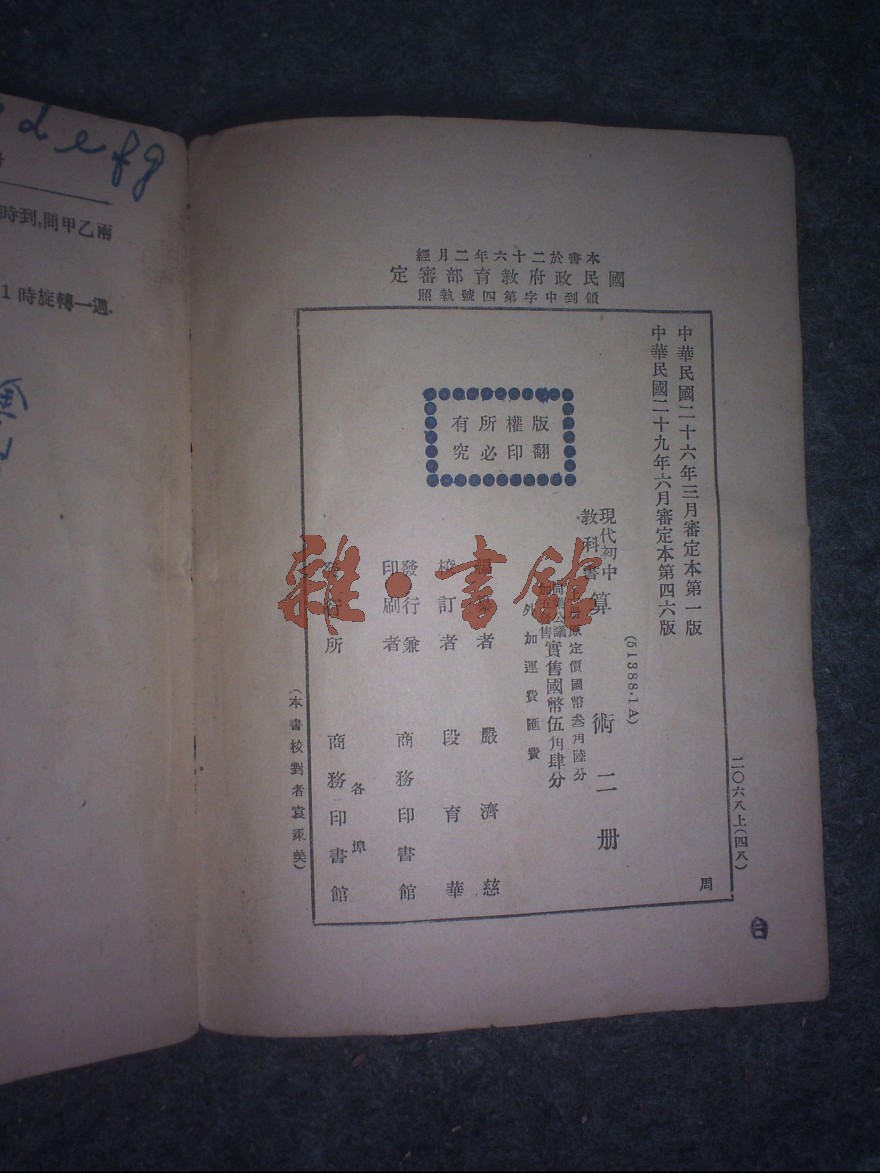 d e f g
時到,問甲乙兩
1時旋轉一週.
本書於二十六年二月經
國民政府教育部審定
領到中字第四號執照
中華民國二十六年三月審定本第一版
中華民國二十九年六月審定本第四六版
版權所有
翻印必究
(51388·1A)
現代初中
教科書
算術二册
原定價國幣叁角陸分
同業公議
加 售
實售國幣伍角肆分
外加運費匯費
者 嚴濟慈
校訂者 段育華
發行兼
印刷者
商務印書館
各埠
發行所 商務印書館
(本書校對者袁秉美)
二〇六八上(四八)
周
雜·書館